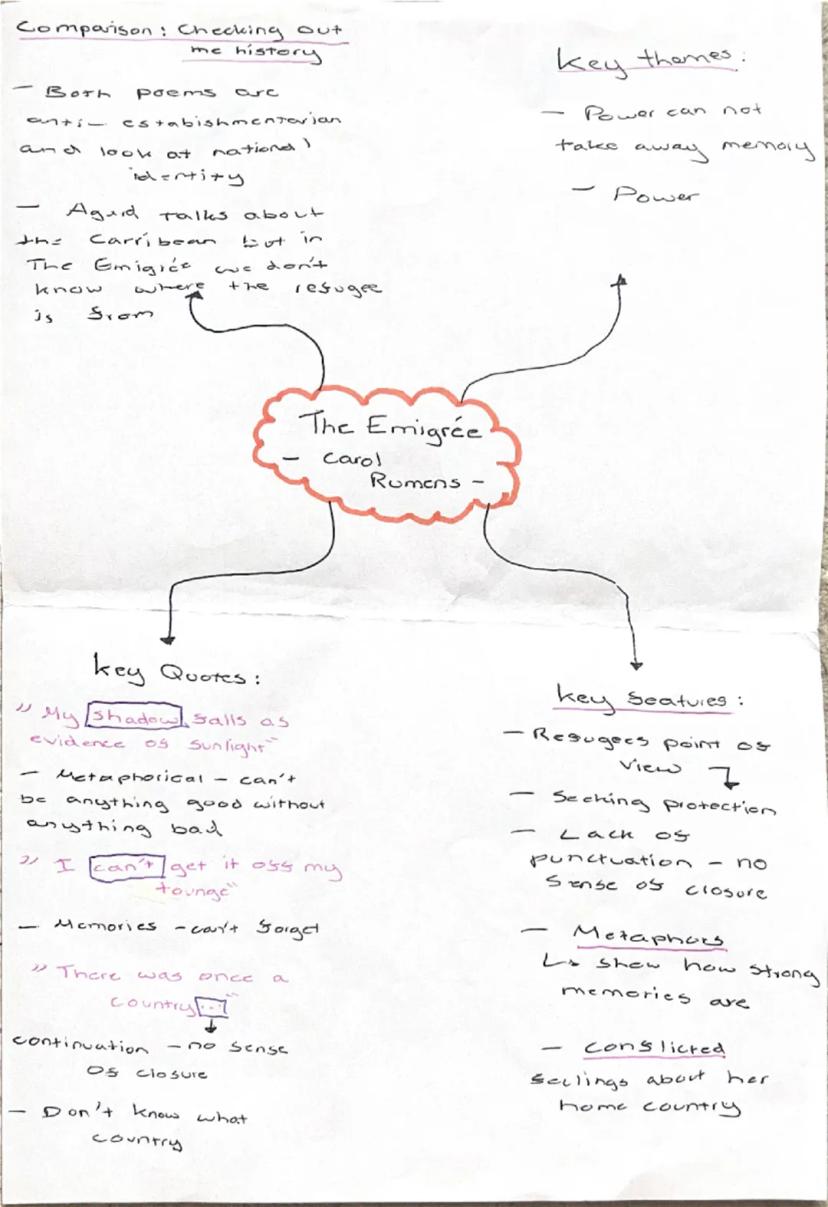 Comparison: Checking out
me history
- Both poems are
anti-estabishmentarian
and look at national
identity
- Agard talks about
the Carribean but in
The Emigrée we don't
know where the refugee
is from
Key themes:
- Power can not
take away memory
- Power
The Emigrée
- Carol
Rumens -
Key Quotes:
"My shadow falls as
evidence of sunlight"
- Metaphorical - can't
be anything good without
anything bad
"I can't get it off my
tounge"
- Memories - can't forget
"There was once a
country..."
continuation - no sense
of closure
- Don't know what
country
Key features:
- Refugees point of
view
- Seeking protection
- Lack of
punctuation - no
sense of closure
- Metaphors
↳ show how strong
memories are
- Conflicted
feelings about her
home country